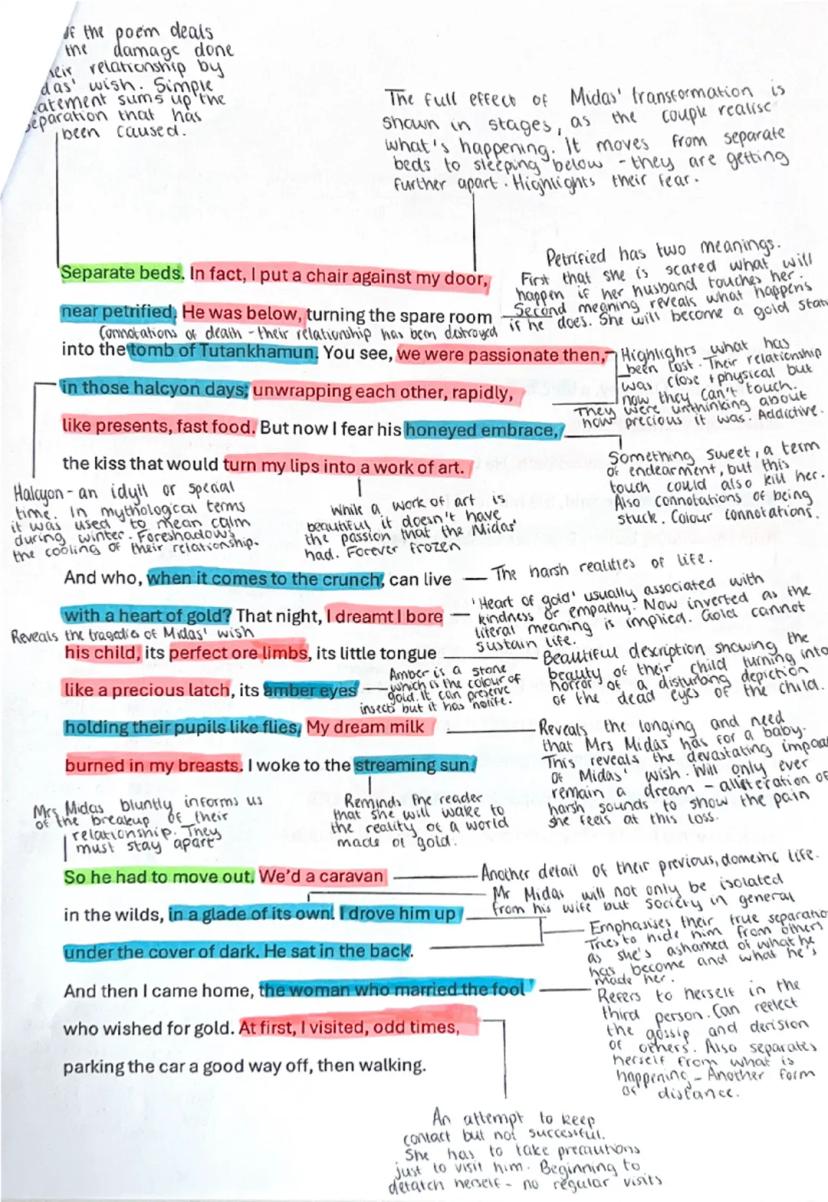 of the poem deals
the damage done
their relationship by
das' wish. Simple
atement sums up the
eparation that has
been caused.
The full effect of Midas' transformation is
shown in stages, as the couple realise
what's happening. It moves from separate
beds to sleeping below - they are getting
further apart. Highlights their fear.
Separate beds. In fact, I put a chair against my door,
near petrified. He was below, turning the spare room
into the tomb of Tutankhamun. You see, we were passionate then,
in those halcyon days; unwrapping each other, rapidly,
like presents, fast food. But now I fear his honeyed embrace,
the kiss that would turn my lips into a work of art.
Petrified has two meanings.
First that she is scared what will
happen if her husband touches her.
Second meaning reveals what happens
if he does. She will become a gold stat
Connotations of death - their relationship has been destroyed
Highlights what has
been lost. Their relationship
was close + physical but
now they can't touch.
They were unthinking about
how precious it was. Addictive.
Something sweet, a term
of endearment, but this
touch could also kill her.
Also connotations of being
stuck. Colour connotations.
Halcyon - an idyll or special
time. In mythological terms
it was used to mean calm
during winter. Foreshadows
the cooling of their relationship.
While a work of art is
beautiful it doesn't have
the passion that the Midas'
had. Forever frozen
And who, when it comes to the crunch, can live
with a heart of gold? That night, I dreamt I bore
his child, its perfect ore limbs, its little tongue
like a precious latch, its amber eyes
holding their pupils like flies. My dream milk
burned in my breasts. I woke to the streaming sun.
The harsh realities of life.
'Heart of gold' usually associated with
kindness or empathy. Now inverted as the
literal meaning is implied. Gold cannot
sustain life.
Reveals the tragedie of Midas' wish
Beautiful description showing the
beauty of their child turning into
horror of a disturbing depiction
of the dead eyes of the child.
Amber is a stone
which is the colour of
gold. It can preserve
insects but it has no life.
Reveals the longing and need
that Mrs Midas has for a baby.
This reveals the devastating impac
of Midas' wish. Will only ever
remain a dream - alliteration of
harsh sounds to show the pain
she feels at this loss.
Reminds the reader
that she will wake to
the reality of a world
made of gold.
Mrs Midas bluntly informs us
of the breakup of their
relationship. They
must stay apart
So he had to move out. We'd a caravan
in the wilds, in a glade of its own. I drove him up
under the cover of dark. He sat in the back.
And then I came home, the woman who married the fool
who wished for gold. At first, I visited, odd times,
parking the car a good way off, then walking.
Another detail of their previous, domestic life.
Mr Midas will not only be isolated
from his wife but society in general
Emphasises their true separatio
Tries to hide him from others
as she's ashamed of what he
has become and what he's
made her.
Refers to herself in the
third person. Can reflect
the gossip and derision
of others. Also separates
herself from what is
happening - Another form
of distance.
An attempt to keep
contact but not successful.
She has to take precautions
just to visit him. Beginning to
detatch herself - no regular visits